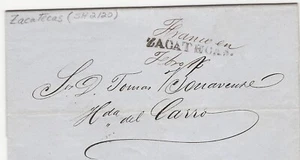 Zacatecas (SH2120)
Franco en
ZACATECAS.
Sr. D. Tomas
Hda
del Carro